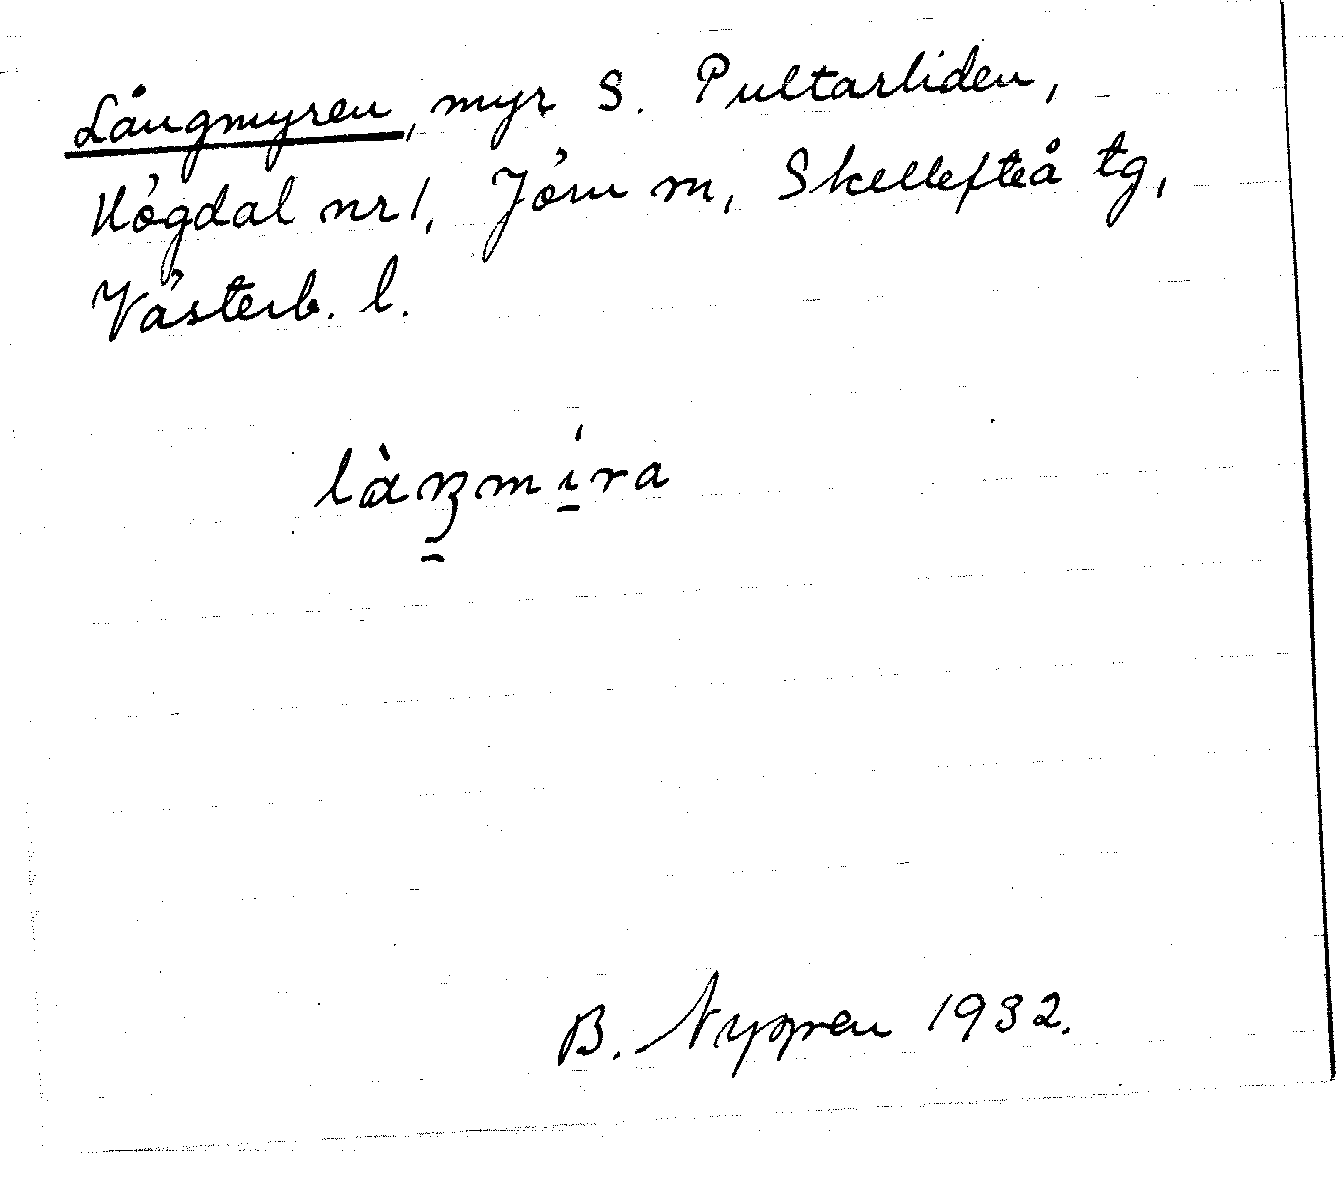 Långmyren, myr S. Pultarliden,
Högdal nr 1, Jörn m, Skellefteå tg,
Västerb. l.
làŋmi̱ra
B. Nygren 1932.